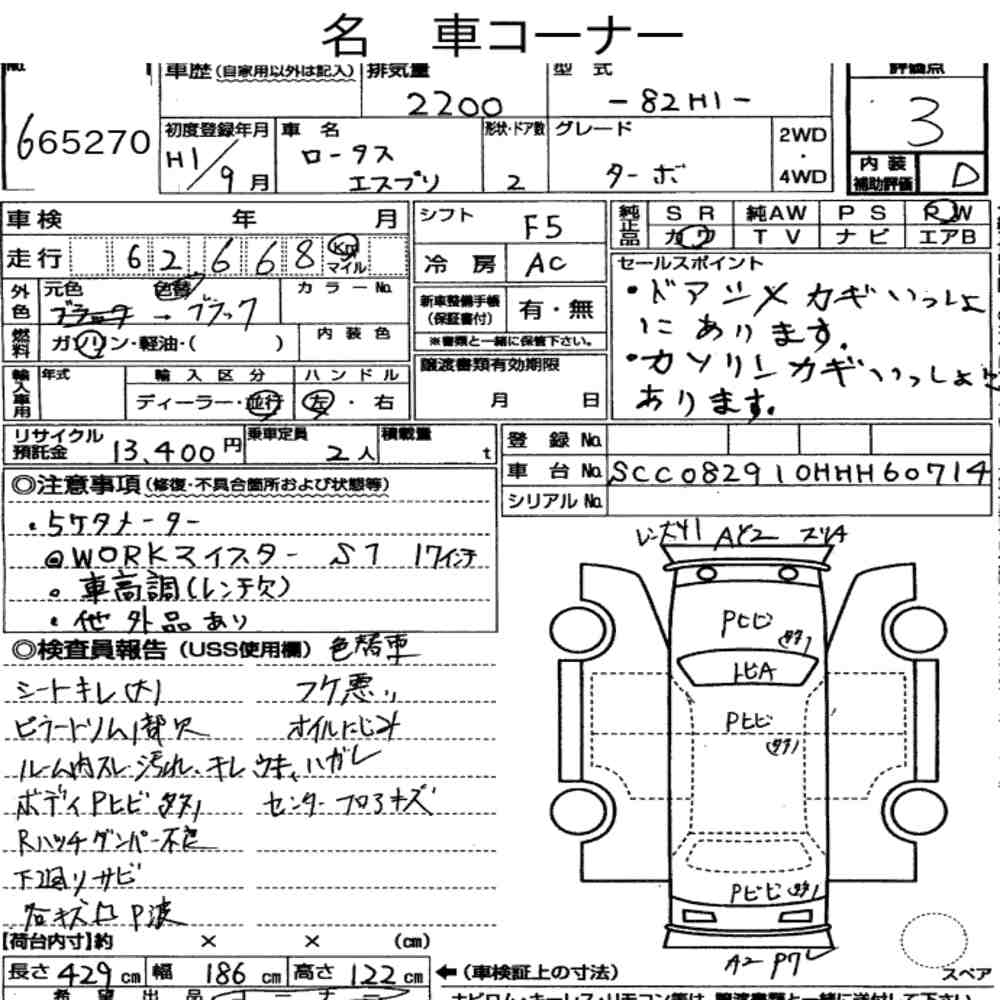 名 車コーナー
車歴(自家用以外は記入) 排気量 2200 型式 -82H1- 評価点 3
665270
初度登録年月 H1/9月 車名 ロータス エスプリ 形状・ドア数 2 グレード ターボ 2WD・4WD 内装補助評価 D
車検 年 月
走行 62668 Km マイル
シフト F5
冷房 AC
純正品 SR 純AW PS RW
カワ TV ナビ エアB
外色 元色 色替 ブラック カラーNo.
燃料 ガソリン・軽油・( ) 内装色
新車整備手帳(保証書付) 有・無
※書類と一緒に保管下さい。
セールスポイント
・ドアシメカギいっしょ
にあります。
・ガソリンカギいっしょに
あります。
輸入車用 年式 輸入区分 ハンドル
ディーラー・並行 左・右
譲渡書類有効期限
月 日
リサイクル預託金 13,400円 乗車定員 2人 積載量 t
登録No.
車台No. SCC082910HHH60714
シリアルNo.
◎注意事項(修復・不具合箇所および状態等)
・5ケタメーター
◎WORKマイスター S1 17インチ
。車高調(レンチ欠)
・他 外品あり
◎検査員報告 (USS使用欄) 色替車
シートキレ(大) フケ悪い
ピラートリム1部欠 オイルにじみ
ルーム内スレ、汚れ、キレ、ウキ、ハガレ
ボディPヒビ タタリ センターフロアキズ
Rハッチダンパー不良
下回りサビ
各キズ凹P波
レンズヤ1 AY2 スリA
Pヒビ
トビA
Pヒビ
Pヒビ
A2 P7
スペア
【荷台内寸】約 × × (cm)
長さ 429cm 幅 186cm 高さ 122cm ←(車検証上の寸法)
希望出品コーナー
ナビロム・キーレス・リモコン等は、譲渡書類と一緒に送付して下さい